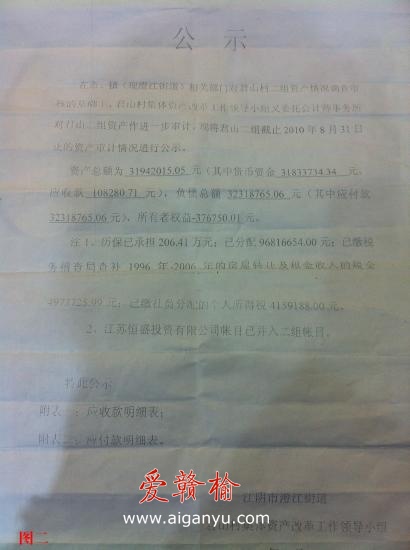 公 示
在市、镇（现澄江街道）相关部门对君山村二组资产情况调查审
核的基础上，君山村集体资产改革工作领导小组又委托会计师事务所
对君山二组资产作进一步审计，现将君山二组截止2010年8月31日
止的资产审计情况进行公示。
资产总额为 31942015.05 元（其中货币资金 31833734.34 元，
应收款 108280.71 元），负债总额 32318765.06 元（其中应付款
32318765.06 元），所有者权益-376750.01 元。
注 1、历保已承担 206.41 万元；已分配 96816654.00 元；已缴税
务稽查局查补 1996 年-2006 年的房屋转让及租金收入的税金
4977728.99 元；已缴社员分配的个人所得税 4159188.00 元。
2、江苏恒盛投资有限公司帐目已并入二组帐目。
特此公示
附表一：应收款明细表；
附表二：应付款明细表。
江阴市澄江街道
君山村集体资产改革工作领导小组
爱赣榆
www.aiganyu.com
图二